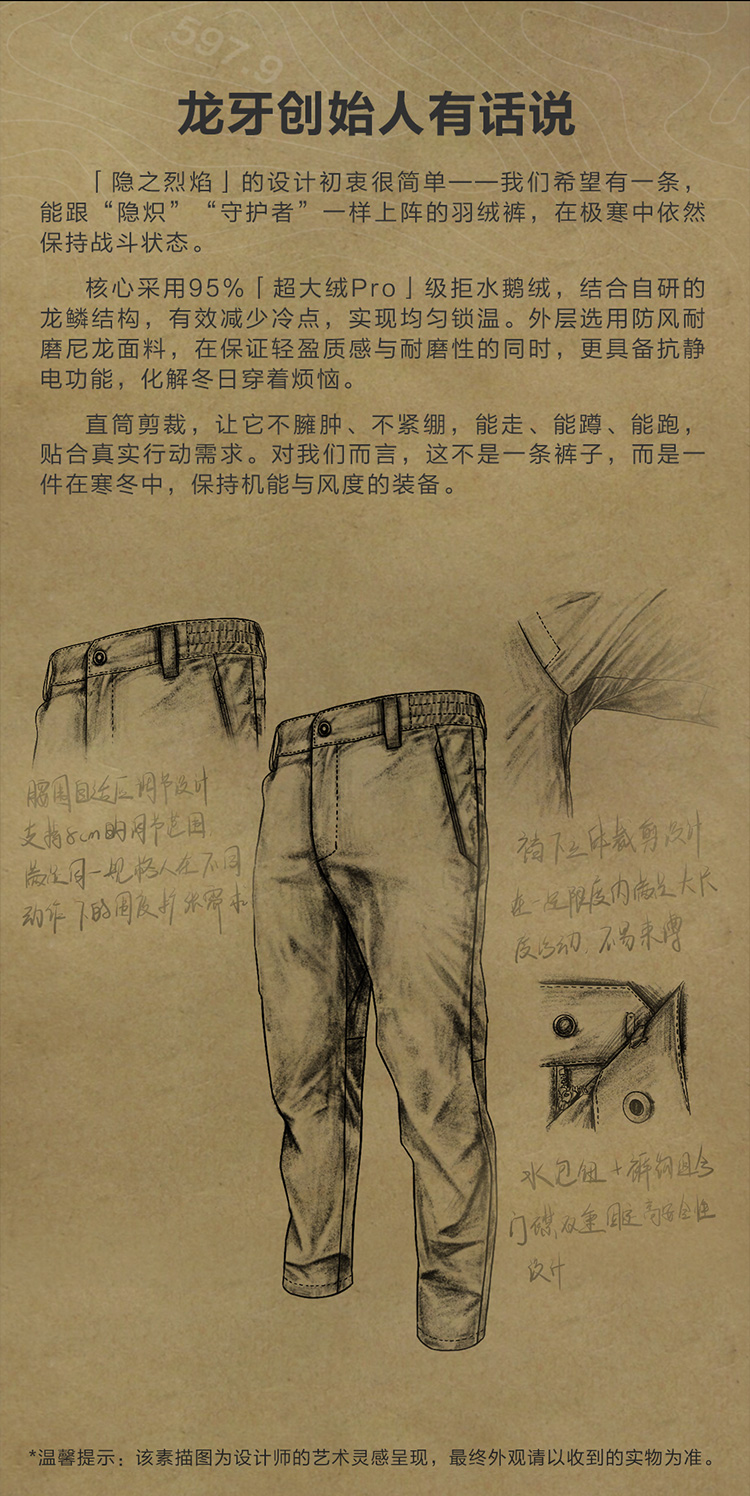 597.9
龙牙创始人有话说
「隐之烈焰」的设计初衷很简单——我们希望有一条，
能跟“隐炽”“守护者”一样上阵的羽绒裤，在极寒中依然
保持战斗状态。
核心采用95%「超大绒Pro」级拒水鹅绒，结合自研的
龙鳞结构，有效减少冷点，实现均匀锁温。外层选用防风耐
磨尼龙面料，在保证轻盈质感与耐磨性的同时，更具备抗静
电功能，化解冬日穿着烦恼。
直筒剪裁，让它不臃肿、不紧绷，能走、能蹲、能跑，
贴合真实行动需求。对我们而言，这不是一条裤子，而是一
件在寒冬中，保持机能与风度的装备。
腰围自适应调节设计
支持8cm的调节范围
满足同一规格人在不同
动作下的围度扩张需求
裆下立体裁剪设计
在一定限度内满足大尺
度活动，不易束缚
水包钮+裤钩组合
门襟双重固定高安全性
设计
*温馨提示：该素描图为设计师的艺术灵感呈现，最终外观请以收到的实物为准。